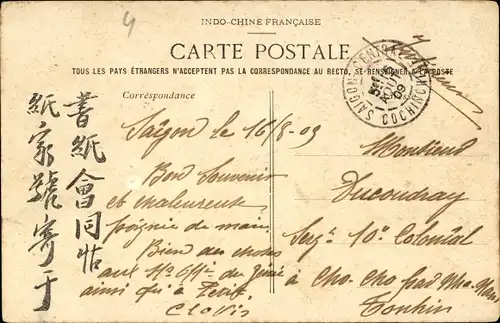 INDO-CHINE FRANÇAISE
CARTE POSTALE
TOUS LES PAYS ÉTRANGERS N'ACCEPTENT PAS LA CORRESPONDANCE AU RECTO, SE RENSEIGNER A LA POSTE
Correspondance
SAIGON-CENTRAL
AOUT
09
COCHINCHINE
Saïgon le 16/8-09
Bon Souvenir
et chaleureuse
poignée de main.
Bien des choses
aux
ainsi qu'à Petit.
Clovis
Monsieur
Ducoudray
Serg. 10e Colonial
à
Tonkin
書紙會同帖
紙家號寄于